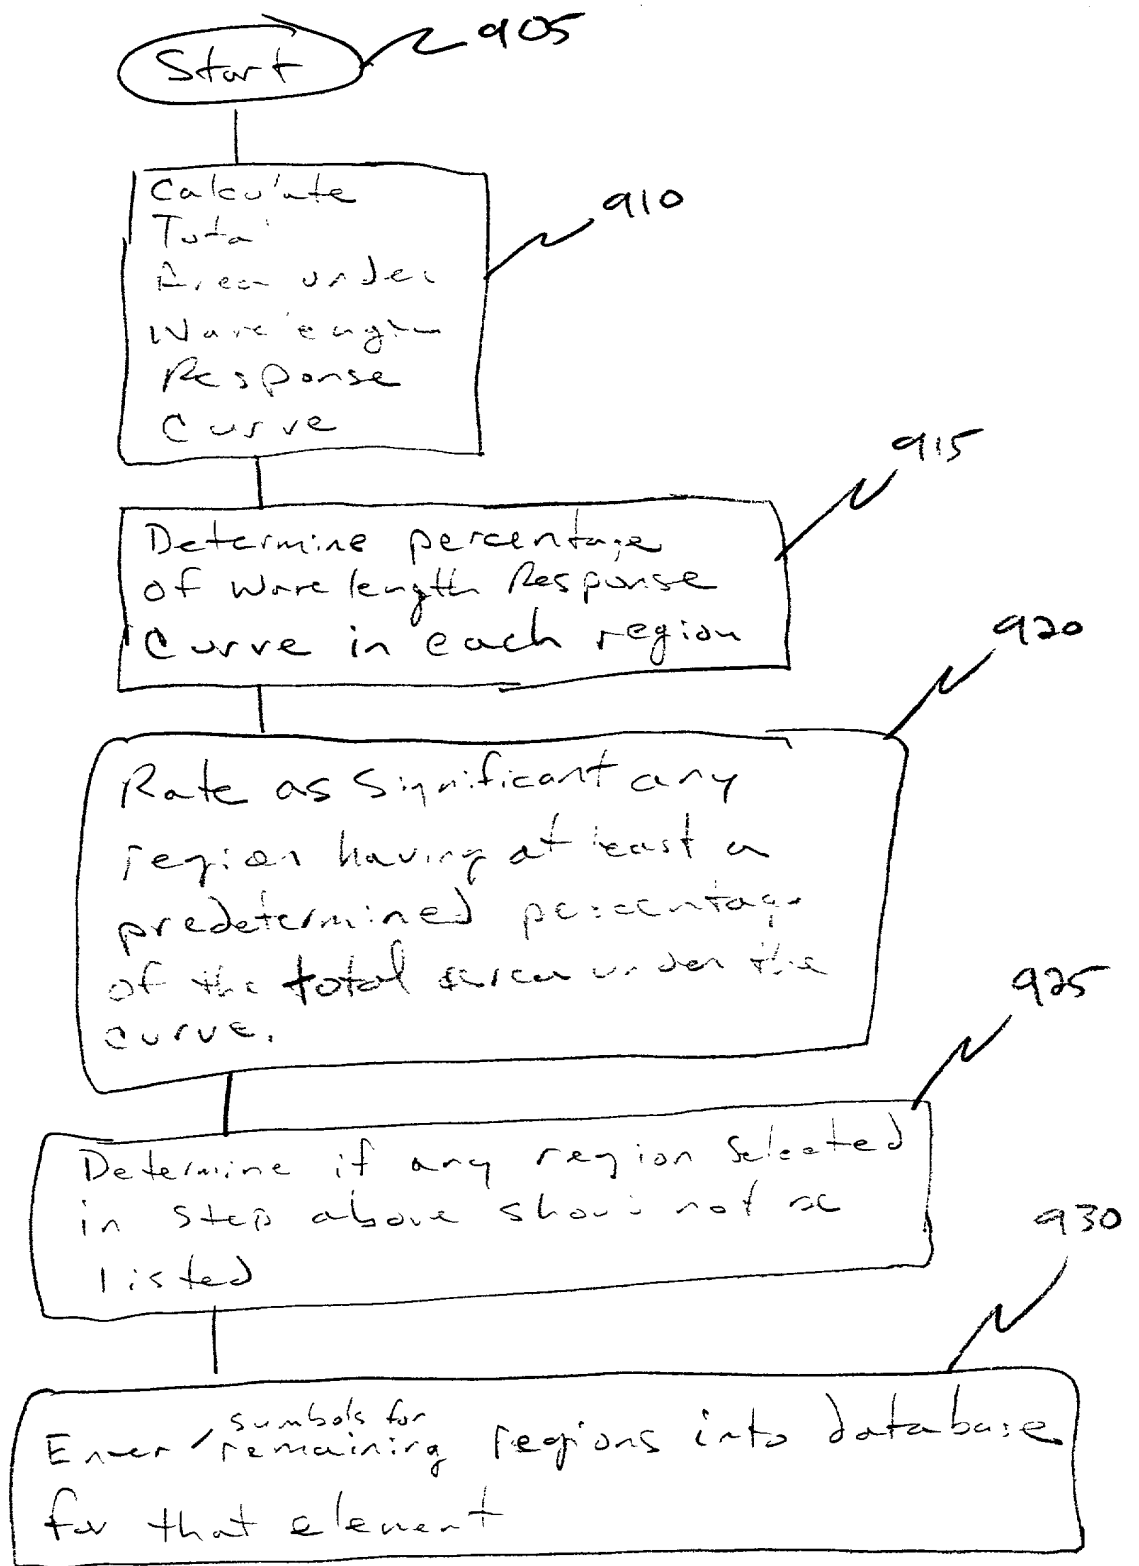 Start
905
Calculate
Total
Area under
Wavelength
Response
Curve
910
Determine percentage
of wavelength Response
Curve in each region
915
Rate as Significant any
region having at least a
predetermined percentage
of the total area under the
curve.
920
Determine if any region Selected
in step above should not be
listed
925
symbols for
Enter remaining regions into database
for that element
930